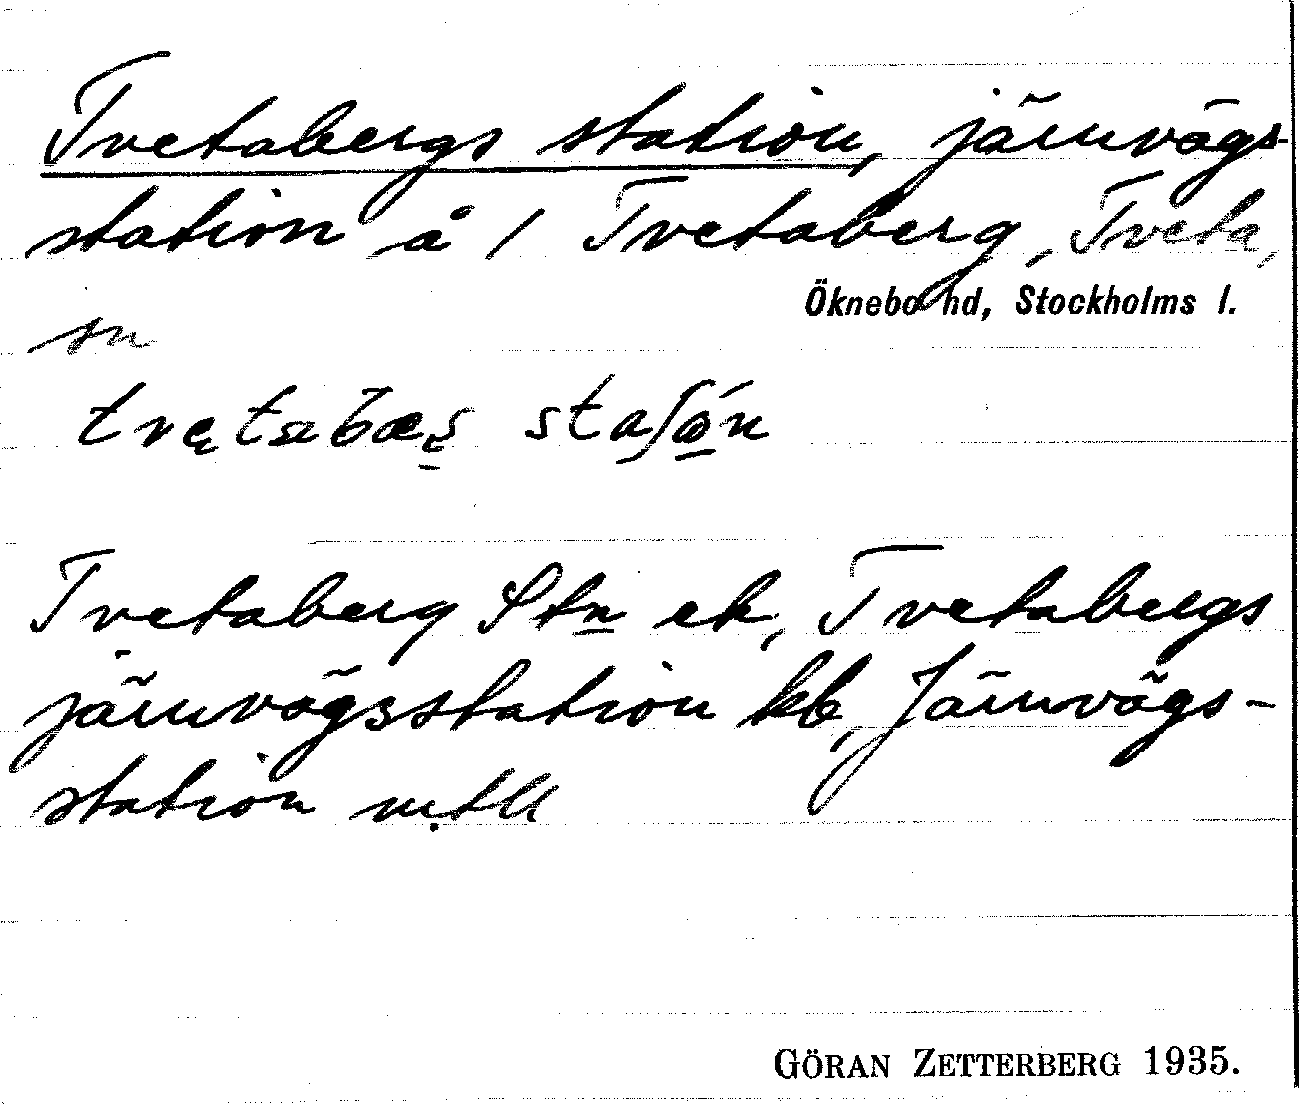 Tvetabergs station, järnvägs-
station å 1 Tvetaberg, Tveta,
Öknebo hd, Stockholms l.
sn
Tvetaberg Stn ek, Tvetabergs
järnvägsstation kb, Järnvägs-
station mtll
GÖRAN ZETTERBERG 1935.